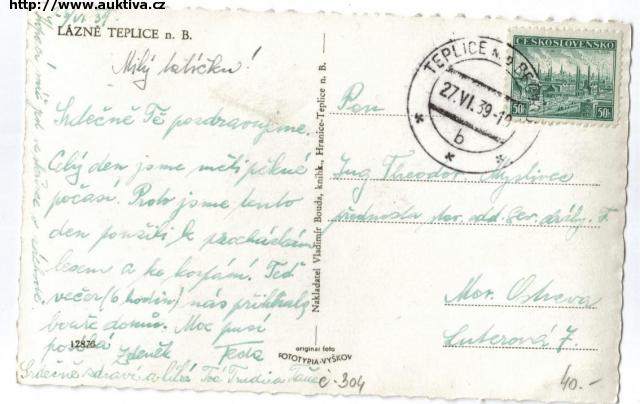 http://www.auktiva.cz
LÁZNĚ TEPLICE n. B.
Milý tatíčku!
Srdečně Tě pozdravujeme.
Celý den jsme měli pěkné
počasí. Proto jsme tento
den použili k procházkám
lesem a ke koupání. Teď
večer (6 hodin) nás přihnala
bouře domů. Moc pusí
posílá Zdeněk
12876
Srdečně zdraví a líbá Tvá
Nakladatel Vladimír Bouda, knihk., Hranice-Teplice n. B.
original foto
FOTOTYPIA-VYŠKOV
č-304
TEPLICE n. BEČVOU
27.VI.39-18
b
ČESKOSLOVENSKO
50h 50h
Pan
Ing Theodor Myslivec
přednosta
Mor. Ostrava
Luterová 7.
40.-